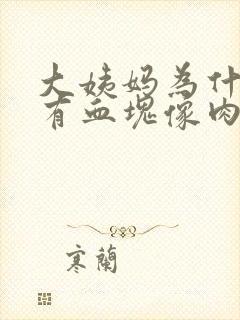 大姨妈為什
有血塊像肉
寒蘭